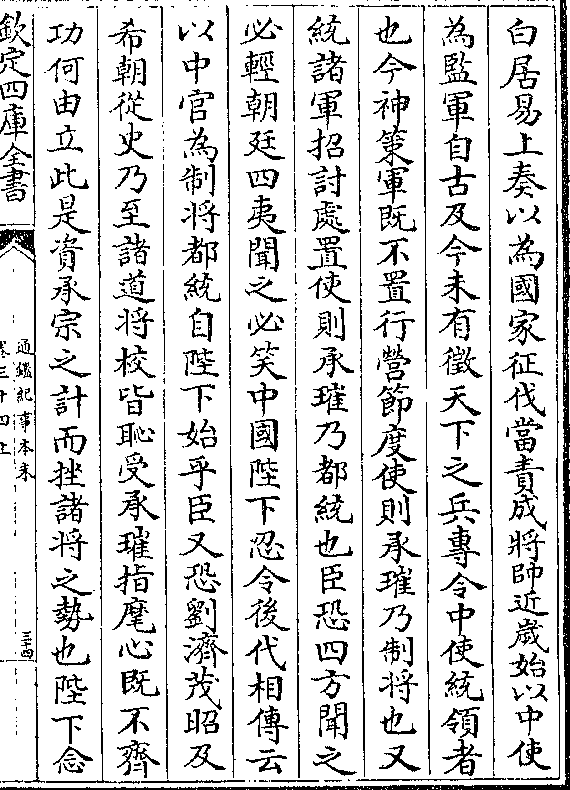 白居易上奏以為國家征伐當責成將帥近歲始以中使
為監軍自古及今未有徵天下之兵專令中使統領者
也今神策軍既不置行營節度使則承璀乃制將也又
統諸軍招討處置使則承璀乃都統也臣恐四方聞之
必輕朝廷四夷聞之必笑中國陛下忍令後代相傳云
以中官為制將都統自陛下始乎臣又恐劉濟茂昭及
希朝從史乃至諸道將校皆恥受承璀指麾心既不齊
功何由立此是資承宗之計而挫諸將之勢也陛下念
欽定四庫全書
通鑑紀事本末
卷三十四上
三十四